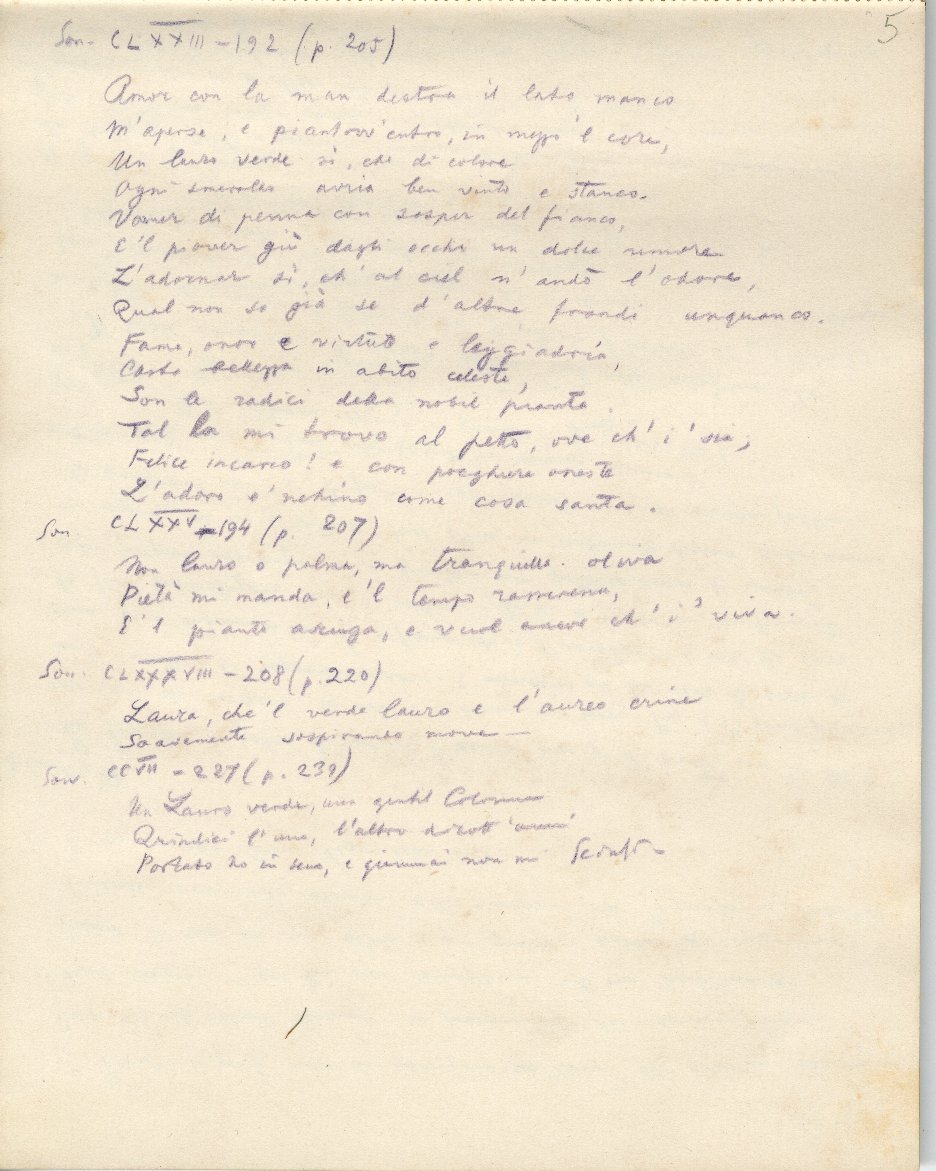 5
Son. CLXXIII - 192 (p. 205)
Amor con la man destra il lato manco
M'aperse, e piantovv'entro, in mezzo 'l core,
Un lauro verde sì, che di colore
Ogni smeraldo avria ben vinto e stanco.
Vomer di penna con sospir del fianco,
E 'l piover giù dagli occhi un dolce umore
L'adornar sì, ch'al ciel n'andò l'odore,
Qual non so già se d'altre frondi unquanco.
Fama, onor e virtute e leggiadria,
Casta bellezza in abito celeste,
Son le radici della nobil pianta.
Tal la mi trovo al petto, ove ch'i' sia;
Felice incarco! e con preghiere oneste
L'adoro e 'nchino come cosa santa.
Son CLXXV - 194 (p. 207)
Non lauro o palma, ma tranquilla oliva
Pietà mi manda, e 'l tempo rasserena,
E 'l pianto asciuga, e vuol ch'i' viva.
Son. CLXXXVIII - 208 (p. 220)
Laura, che 'l verde lauro e l'aureo crine
Soavemente sospirando move —
Son. CCVII - 227 (p. 239)
Un Lauro verde, una gentil Colonna
Quindici l'una, l'altro diciott'anni
Portato ho in seno, e giammai non mi scinsi -